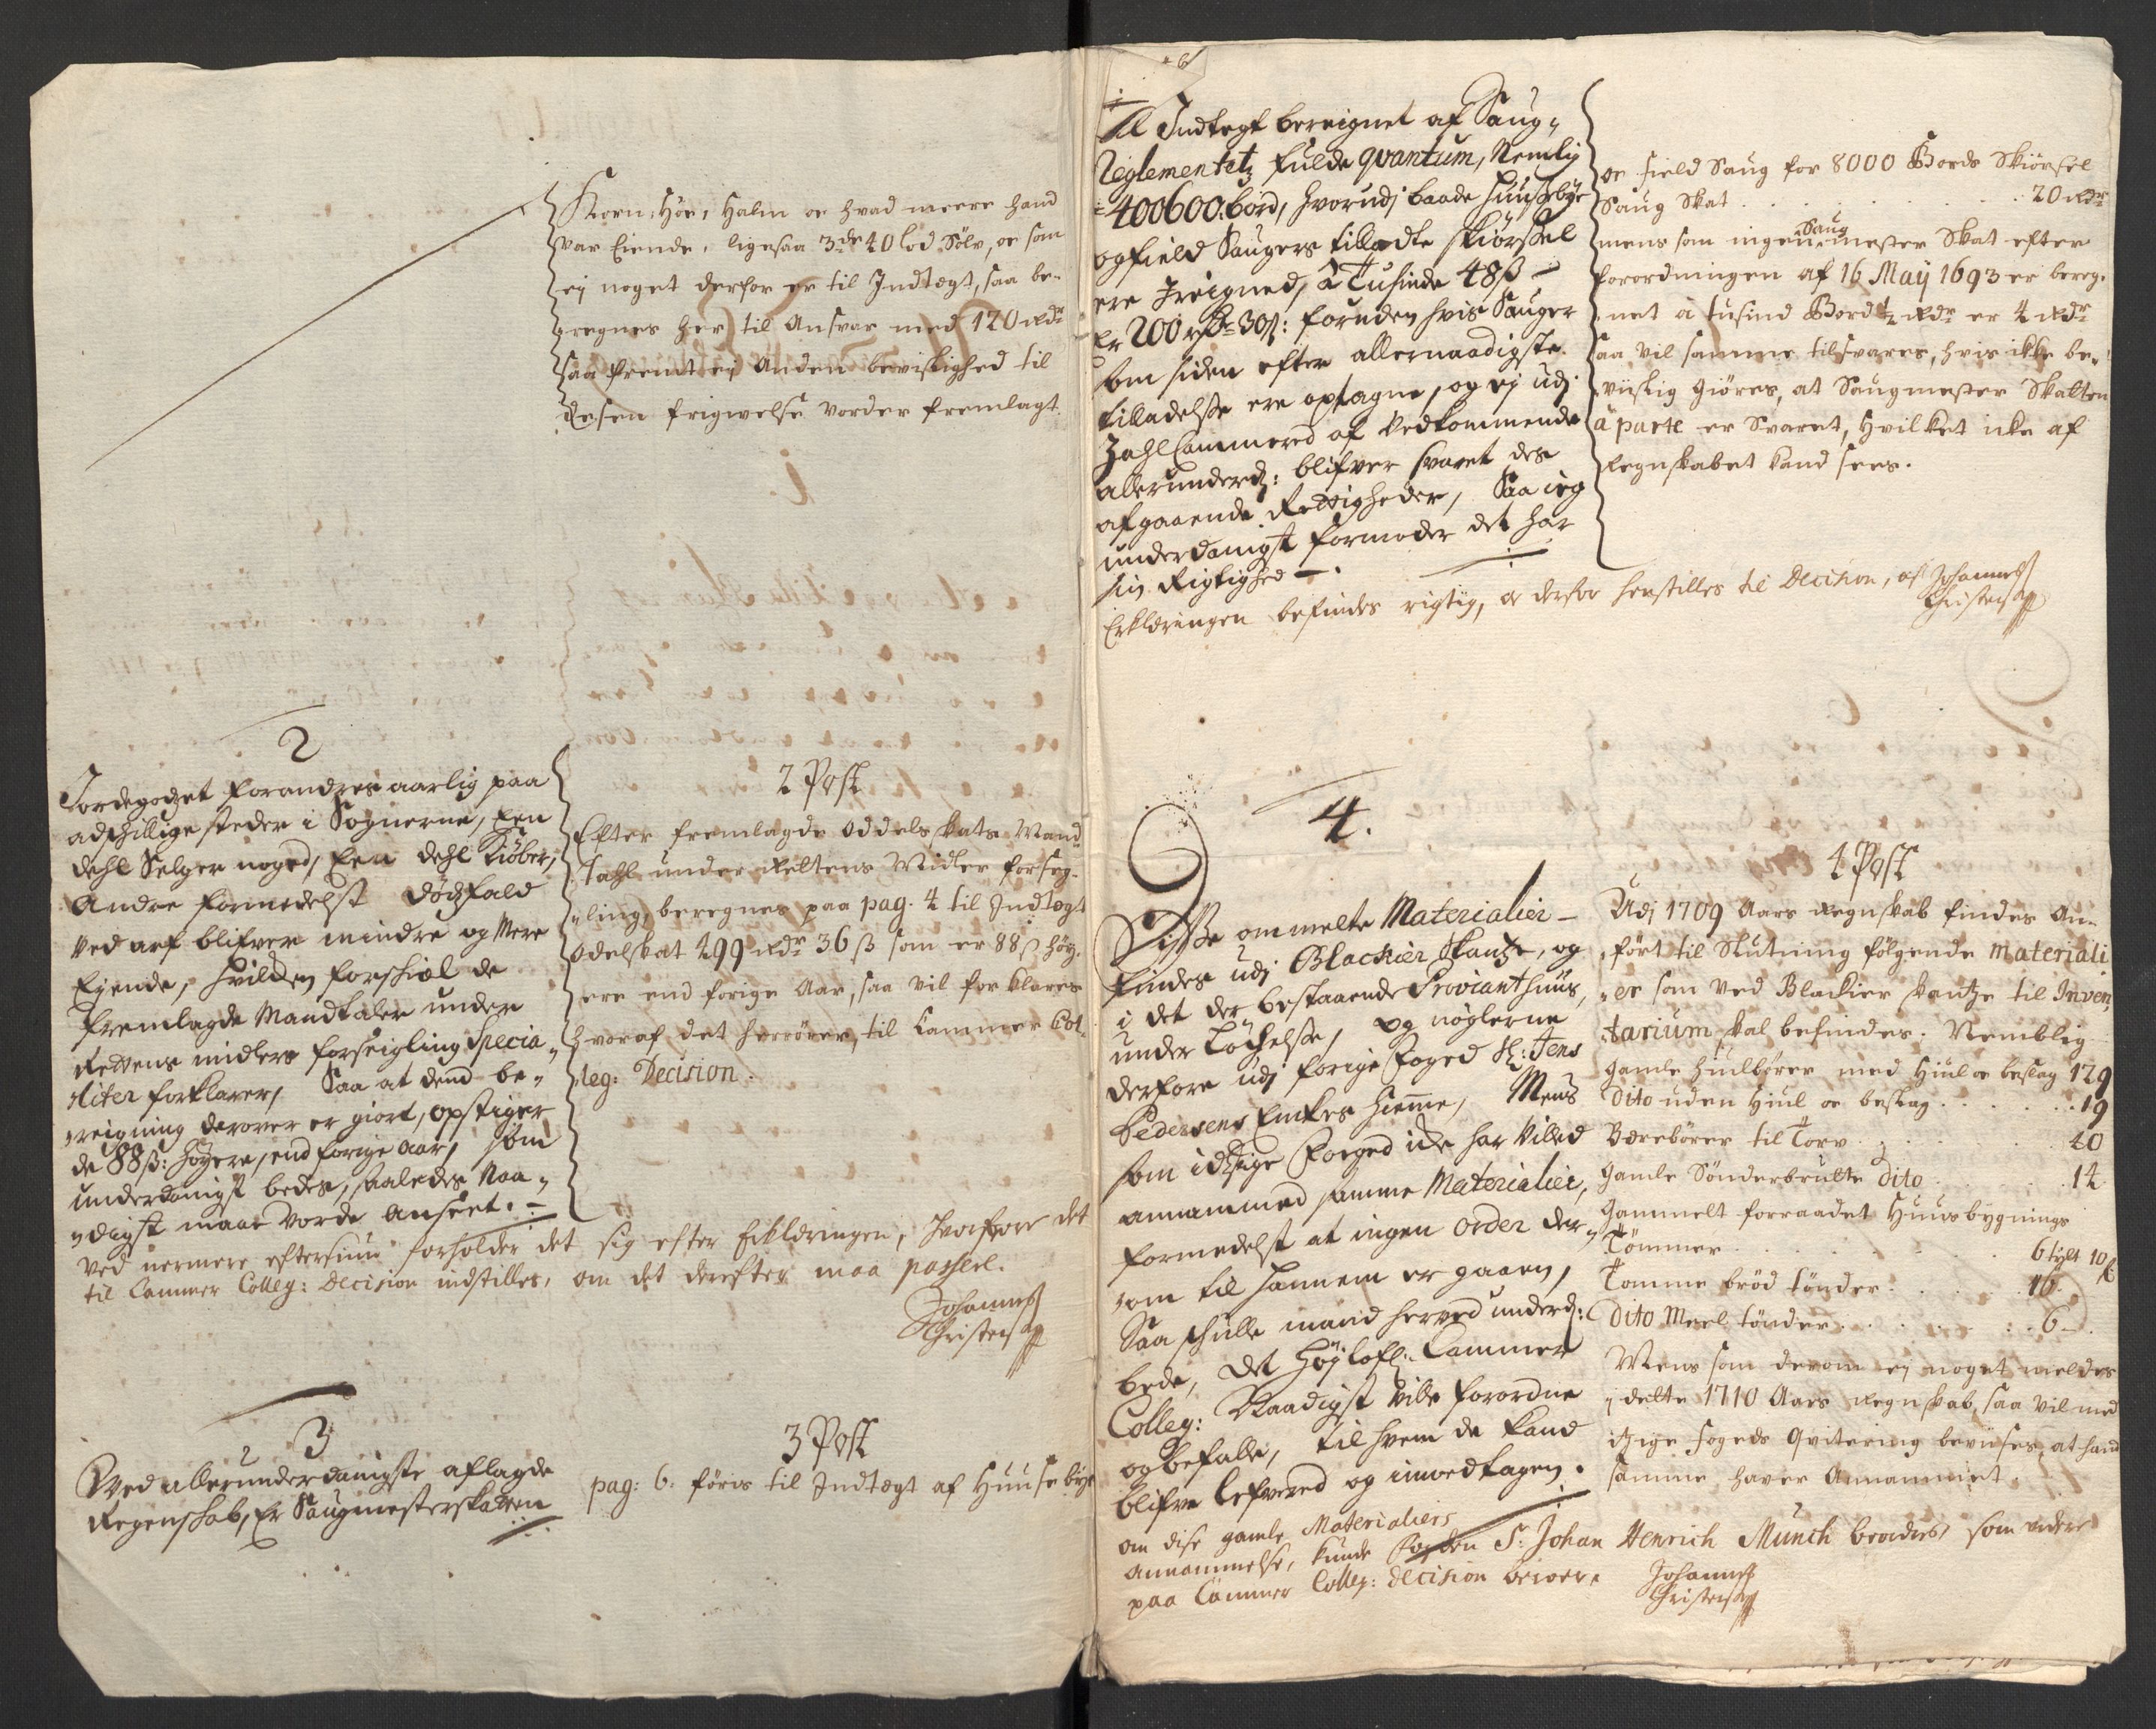 Korn, Høe, Halm oc hvad meere hand
var Eiende, ligesaa 3de 40 lod Sølv, oc som
ej noget derfor er til Indtægt, saa be-
regnes her til Ansvar med 120 Rdr
saa fremt ej Anden bevislighed til
desen frigivelse vorder fremlagt.
2
Jordegodzet forandres aarlig paa
adschillige steder i Sognerne, Een
dehl Selger noged, Een dehl Kiøber,
Andre formedelst dødsfald
ved arf blifver mindre og Mere
Ejende, hvilken forschiæl de
fremlagde Mandtaler under
Rettens midlers forseigling Specia-
liter forklarer, Saa at dend be-
reigning derover er giort, opstiger
de 88 ß: høyere, end forige aar, som
underdanigst bedes, saaledes Naa-
digst maae vorde anseet.
2 Post
Efter fremlagde Oddelskats Mand
Tahl under Rettens Midler forseg-
ling, beregnes paa pag. 4 til Indtægt
Odelskat 499 Rdr 36 ß som er 88 ß høy-
ere end forige Aar, saa vil forklares
hvoraf det herrører, til Cammer Col-
leg: Decision.
Ved nermere eftersiun forholder det sig efter Erklæringen, hvorfore det
til Cammer Colleg: Decision indstilles, om det derefter maa passere.
Johannes
Christensen
3
Ved allerunderdanigste aflagde
Regenschab, Er Saugmesterskatten
3 Post
pag: 6. føris til Indtægt af Huuseby
Til Indtegt bereignet af Saug-
Reglementetz fulde qvantum, Nemlig
400600 bord, hvorudj baade Huusebye
og field Saugers tilladte skiørsel
ere Ireigned, à Tusinde 48 ß
Er 200 rdr 30 ß: foruden hvis Sauger
som siden efter allernaadigste
tilladelse ere optagne, og ej udj
Zahl Cammered af Vedkommende
allerunderd: blifver svaret des
afgaaende Rettigheder, Saa ieg
underdanigst formoder det har
sin Rigtighed
oc field Saug for 8000 Bords Skiørsel
Saug Skat . . . . . . 20 Rdr
mens som ingen Saugmester Skat efter
forordningen af 16 Maÿ 1693 er bereg-
net à tusind Bord ½ Rdr er 4 Rdr
saa vil samme tilsvares, hvis ikke be-
viislig giøres, at Saugmester Skatten
à parte er Svaret, Hvilket icke af
Regnskabet kand sees.
Erklæringen befindes rigtig, oc derfor henstilles til Decision, af Johannes
Christensen
4.
Disse ommelte Materialier
findes udj Blackiær Skantze, og
i det der bestaaende Proviant huus,
under Lochelse, og nøglerne
derfore udj forige Foged Sl: Jens
Pedersens Enkes hieme, Mens
som idtzige Foeged icke har villed
annammed samme Materialier,
formedelst at ingen order der-
om til hannem er gaaen,
Saa schulle mand herved underd:
bede, det Høylofl: Cammer
Colleg: Naadigst ville forordne
og befalle, til hvem de kand
blifve lefvered og imodtagen.
4 Post
Udj 1709 Aars Regnskab findes An-
ført til Slutning følgende materiali
er som ved Blackier Skantze til Inven
tarium skal befindes. Nemblig
gamle hiulbører med Hiul oc beslag 129
Dito uden Hiul oc beslag . . . . 19
Bærebører til Torv . . . . 40
gamle Sønderbrutte Dito . . . . 14
gammelt forraadet Huusbygnings
Tømmer . . . . 6 tylt 10 st
Tomme brød tønder . . . . 16
Dito Meel tønder . . . . 6
Mens som derom ej noget meldes
i dette 1710 Aars Regnskab, saa vil med
itzige fogeds Qvitering beviises, at hand
samme haver Annammet.
om dise gamle Materialiers
annammelse, kunde Fogden Sr: Johan Henrich Munch beordres, som videre
paa Cammer Colleg: decision beroer.
Johannes
Christensen